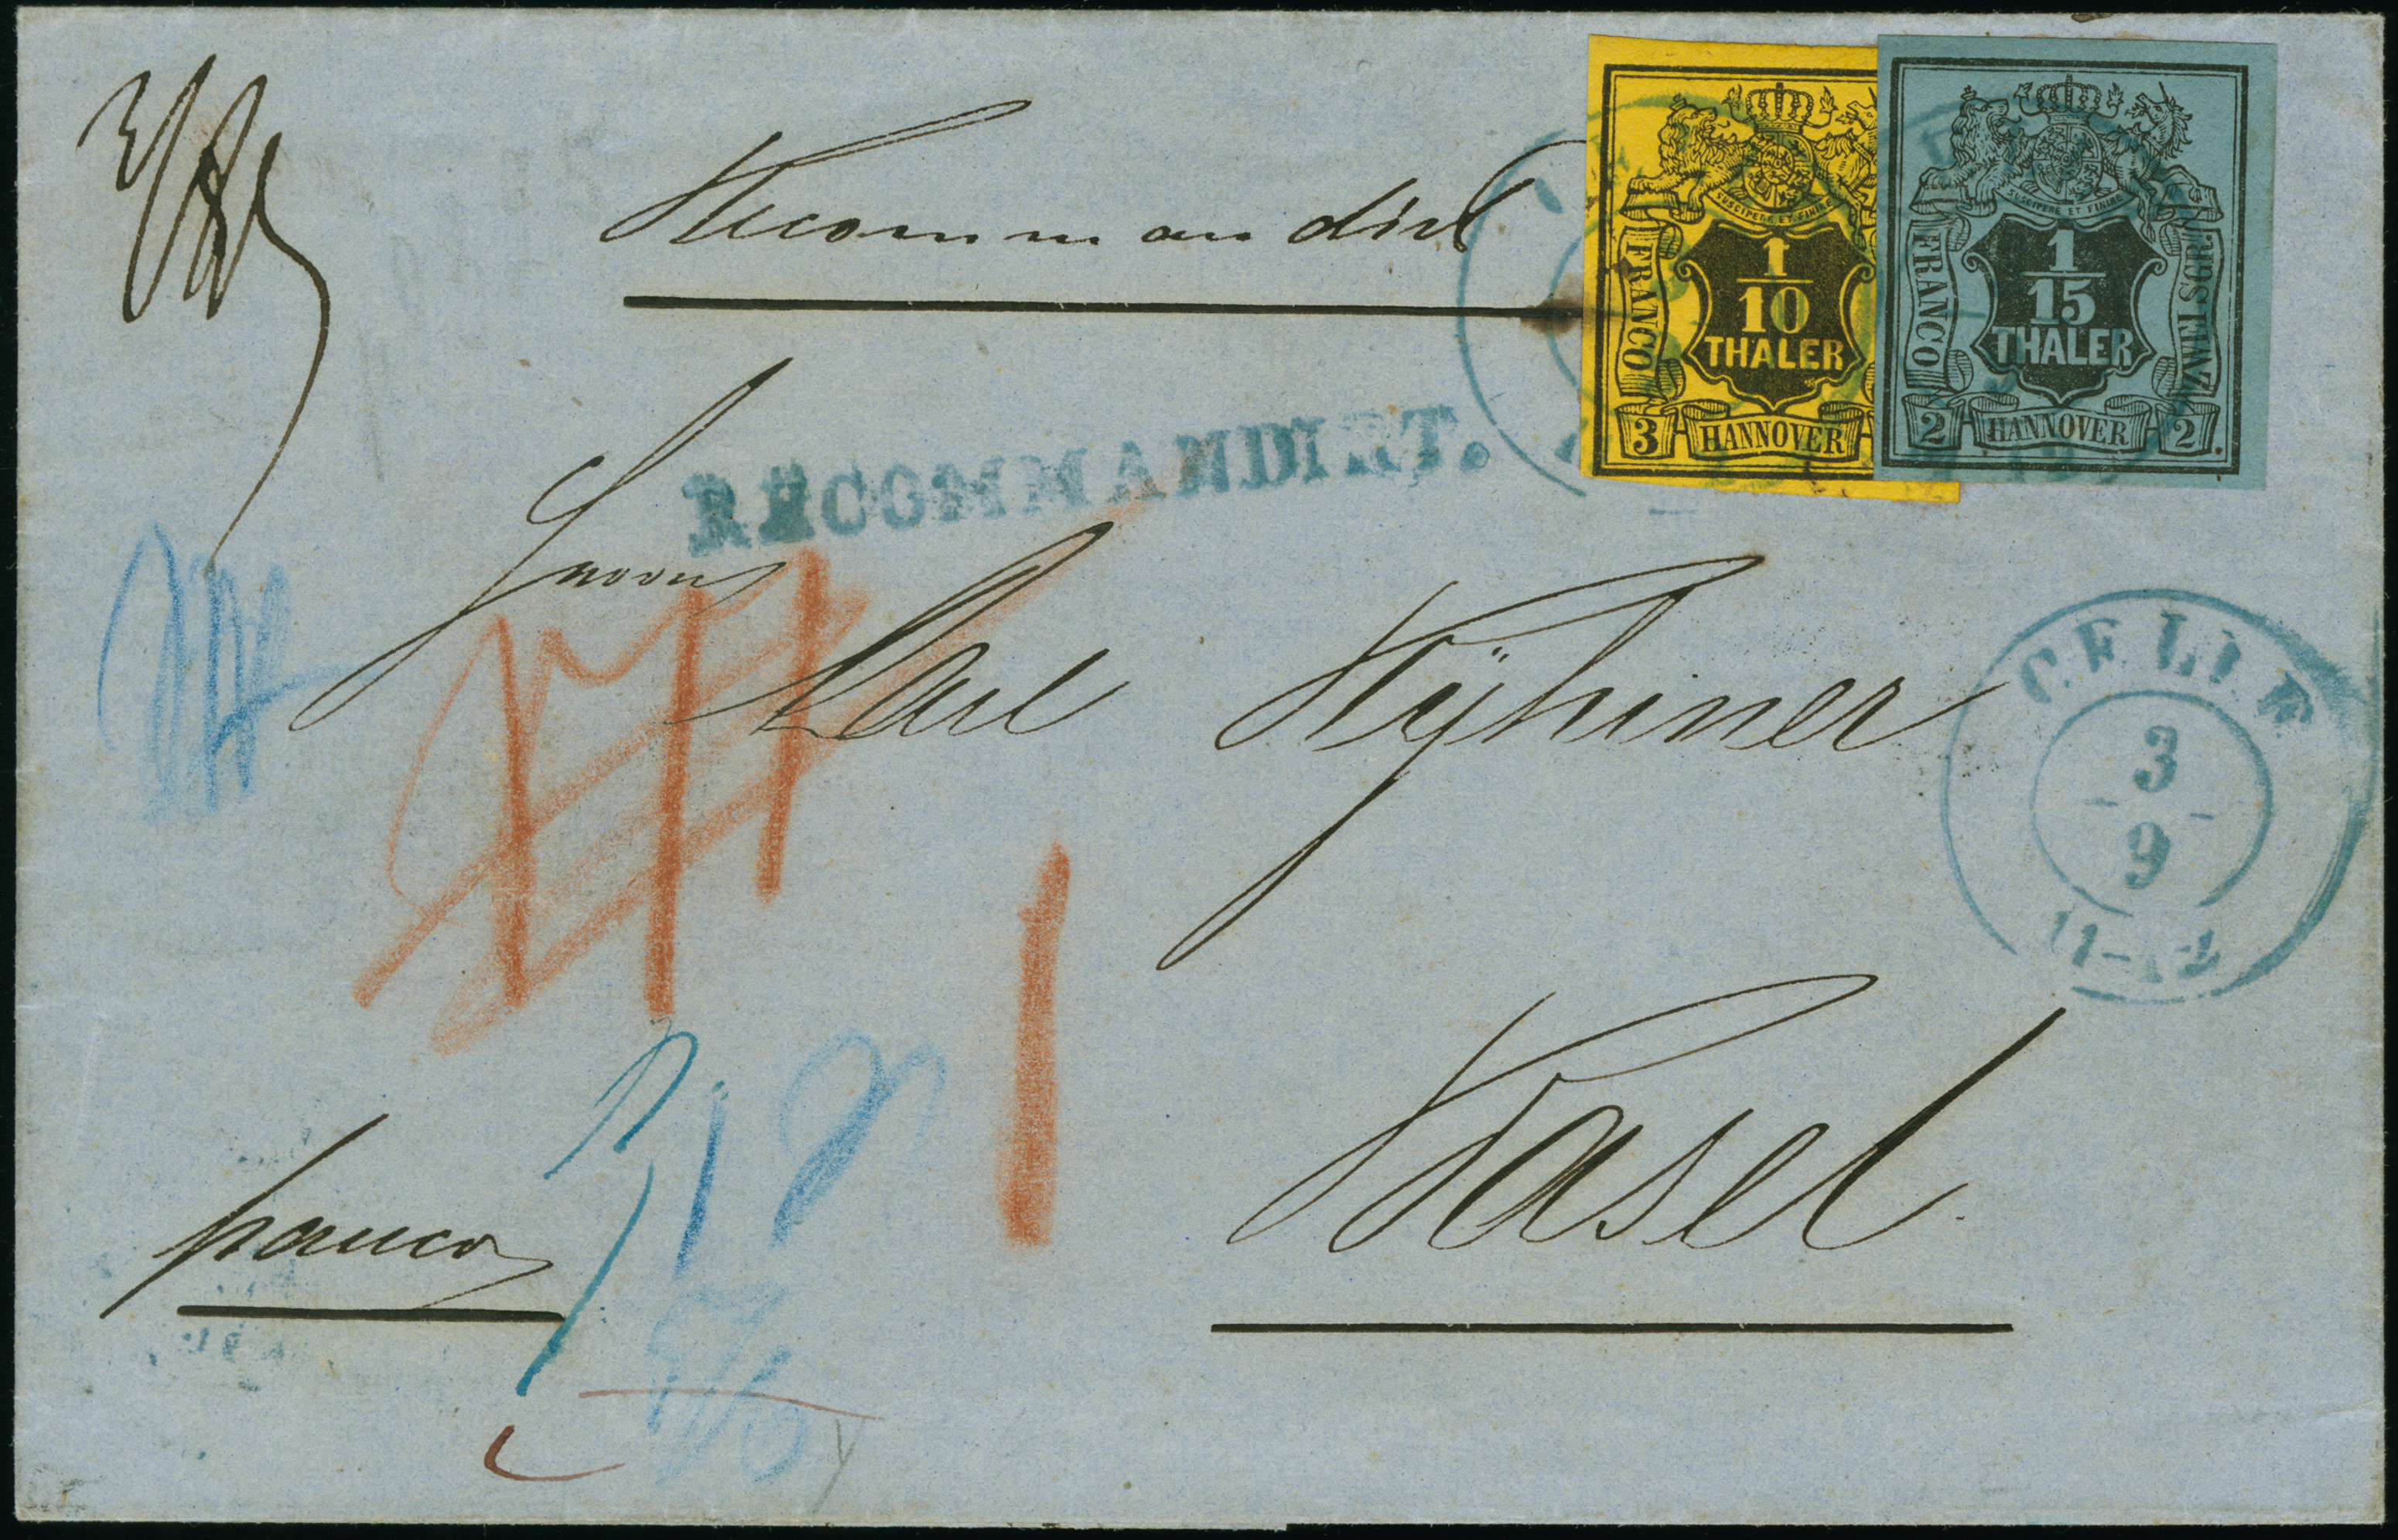 Recommandirt
SUSCIPERE ET FINIRE
FRANCO
1
10
THALER
3
HANNOVER
SUSCIPERE ET FINIRE
FRANCO
1
15
THALER
ZWEI SGR.
2
HANNOVER
2.
RECOMMANDIRT.
Herrn
Carl Ryhiner
CELLE
3
9
11-12
1
Basel
franco